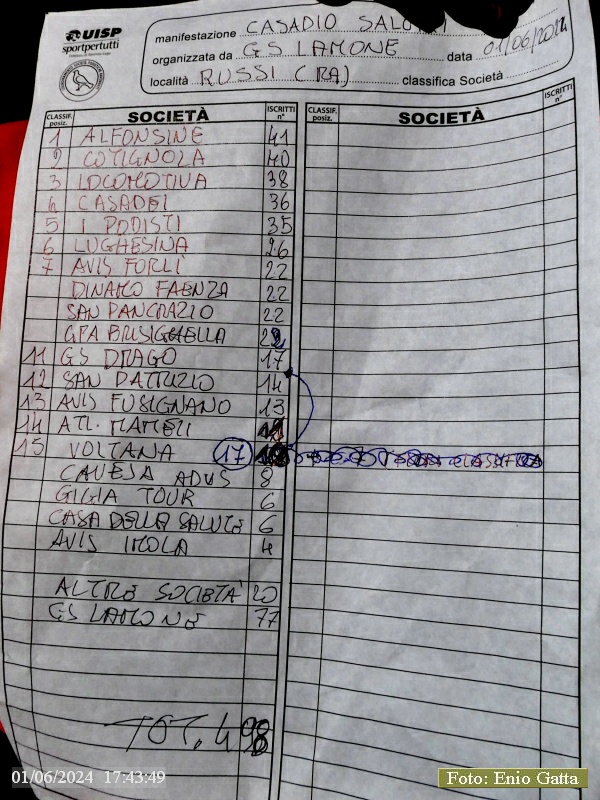 UISP
sportpertutti
manifestazione CASADIO
organizzata da GS LAMONE data 01/06/2024
località RUSSI (RA) classifica Società
CLASSIF. posiz. SOCIETÀ ISCRITTI n° CLASSIF. posiz. SOCIETÀ ISCRITTI n°
1 ALFONSINE 41
2 COTIGNOLA 40
3 LOCOMOTIVA 38
4 CASADEI 36
5 I PODISTI 35
6 LUGHESINA 26
7 AVIS FORLÌ 22
DINAMO FAENZA 22
SAN PANCRAZIO 22
GPA BRISIGHELLA 22
11 GS DRAGO 17
12 SAN PATRIZIO 14
13 AVIS FUSIGNANO 13
14 ATL. MAMELI
15 VOLTANA 17
CAVEJA ADVS 8
GIGIA TOUR 6
CASA DELLA SALUTE 6
AVIS IMOLA 4
ALTRE SOCIETÀ 20
GS LAMONE 77
TOT. 498
01/06/2024 17:43:49
Foto: Enio Gatta